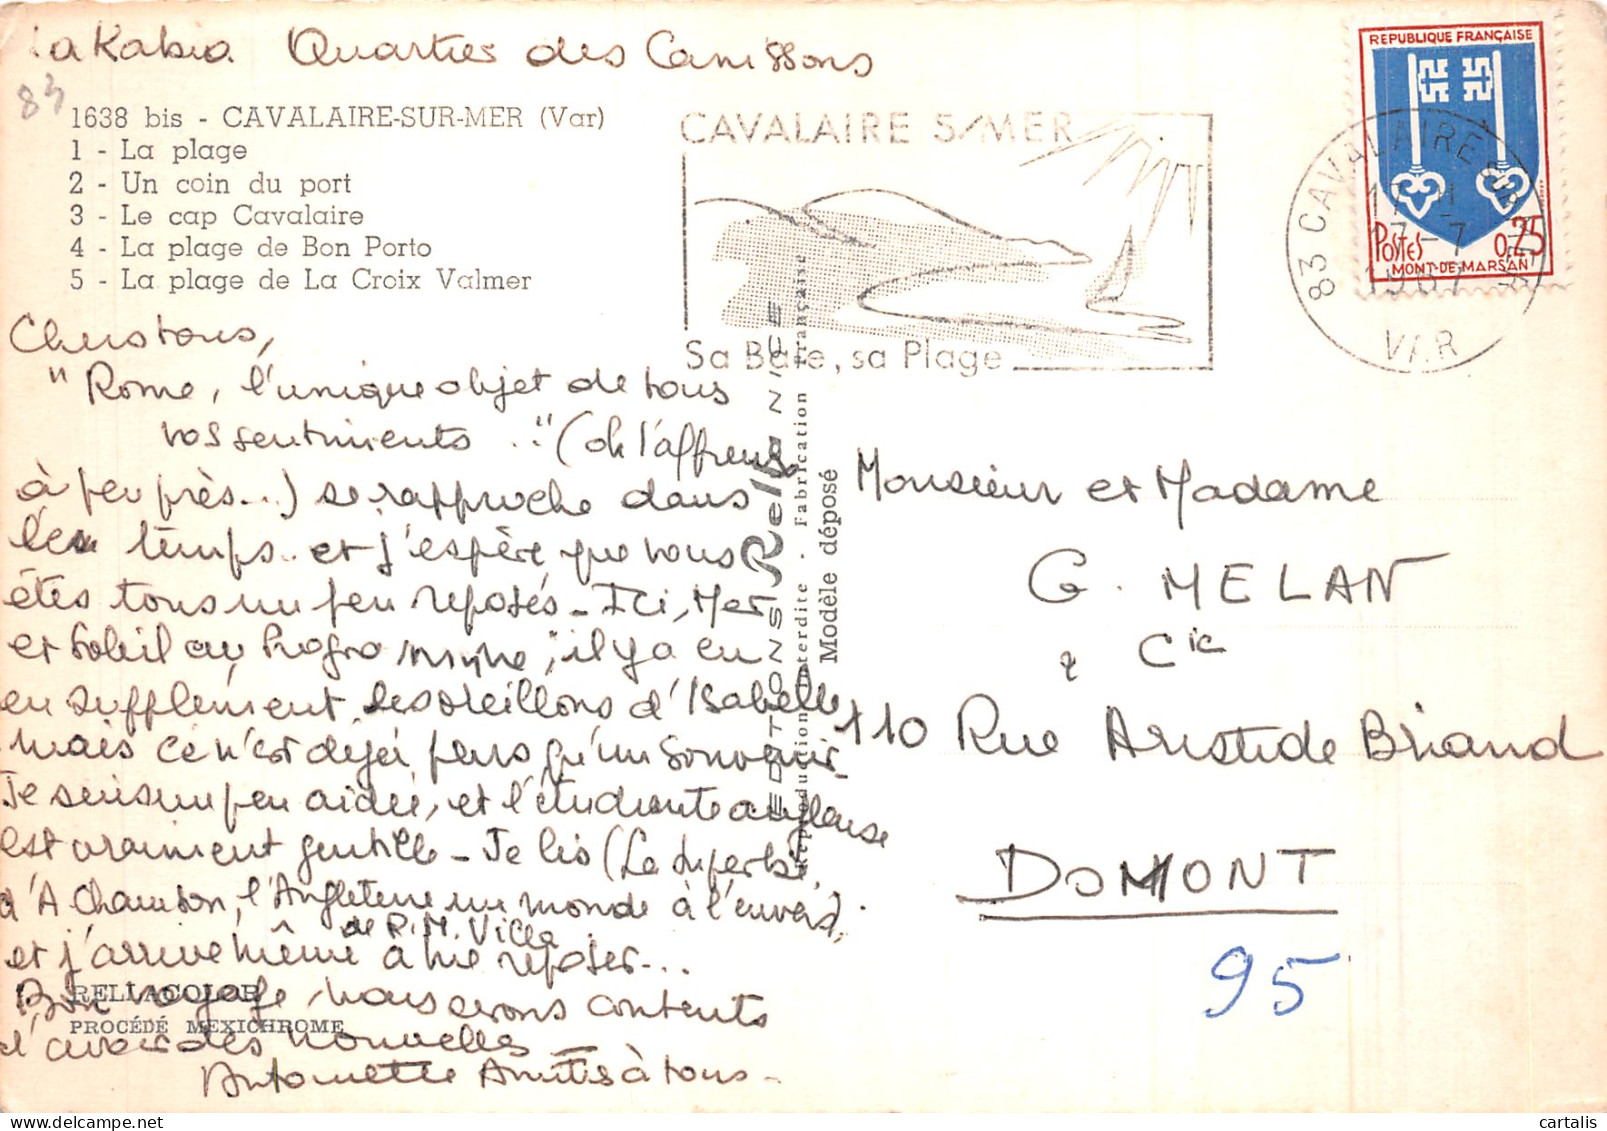 La Kabia Quartier des Canissons
83
1638 bis - CAVALAIRE-SUR-MER (Var)
1 - La plage
2 - Un coin du port
3 - Le cap Cavalaire
4 - La plage de Bon Porto
5 - La plage de La Croix Valmer
CAVALAIRE S/MER
Sa Baie, sa Plage
REPUBLIQUE FRANÇAISE
POSTES 0,25
MONT-DE-MARSAN
83 CAVALAIRE SUR MER
17 H
17-7
1967
VAR
EDITIONS Rella NICE
Reproduction Interdite - Fabrication Française
Modèle déposé
"Rome, l'unique objet de tous
vos sentiments.." (oh l'affreux
à peu près...) se rapproche dans
le temps.. et j'espère que vous
êtes tous un peu reposés - Ici, Mer
et Soleil au Programme, il y a eu
en supplément les oreillons d'Isabelle
mais ce n'est déjà plus qu'un souvenir
Je suis un peu aidée, et l'étudiante anglaise
est vraiment gentille - Je lis (La Superbe
d'A Chamson, l'Angleterre un monde à l'envers,
de P.M. Villa
et j'arrive même à me reposer...
Bon voyage, nous serons contents
d'avoir des nouvelles -
Antoinette Amitiés à tous -
RELLACOLOR
PROCÉDÉ MEXICHROME
Monsieur et Madame
G. MELAN
& Cie
110 Rue Aristide Briand
DOMONT
95
cartalis
www.delcampe.net